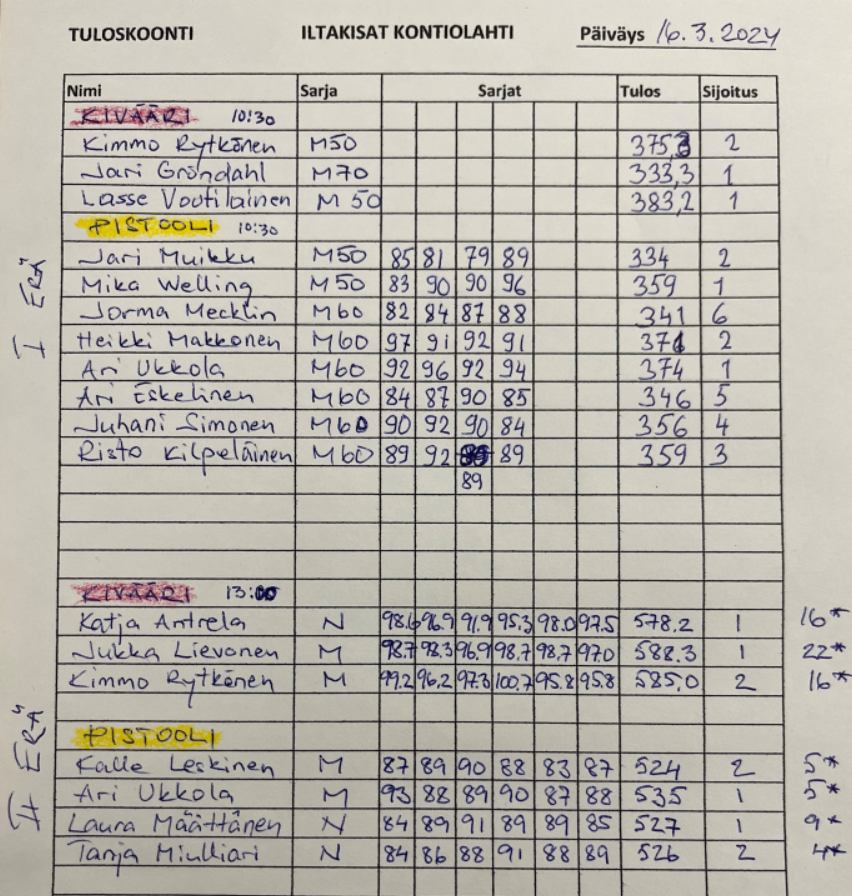 TULOSKOONTI ILTAKISAT KONTIOLAHTI Päiväys 16.3.2024
Nimi Sarja Sarjat Tulos Sijoitus
KIVÄÄRI 10:30
Kimmo Rytkönen M50 375,3 2
Jari Gröndahl M70 333,3 1
Lasse Voutilainen M 50 383,2 1
PISTOOLI 10:30
I ERÄ
Jari Muikku M50 85 81 79 89 334 2
Mika Welling M50 83 90 90 96 359 1
Jorma Mecklin M60 82 84 87 88 341 6
Heikki Makkonen M60 97 91 92 91 371 2
Ari Ukkola M60 92 96 92 94 374 1
Ari Eskelinen M60 84 87 90 85 346 5
Juhani Simonen M60 90 92 90 84 356 4
Risto Kilpeläinen M60 89 92 89 359 3
89
KIVÄÄRI 13:00
Katja Antrela N 98.6 96.9 91.9 95.3 98.0 97.5 578.2 1 16*
Jukka Lievonen M 98.7 98.3 96.9 98.7 98.7 97.0 588.3 1 22*
Kimmo Rytkönen M 99.2 96.2 97.3 100.7 95.8 95.8 585,0 2 16*
II ERÄ
PISTOOLI
Kalle Leskinen M 87 89 90 88 83 87 524 2 5*
Ari Ukkola M 93 88 89 90 87 88 535 1 5*
Laura Määttänen N 84 89 91 89 89 85 527 1 9*
Tanja Miulliari N 84 86 88 91 88 89 526 2 4*